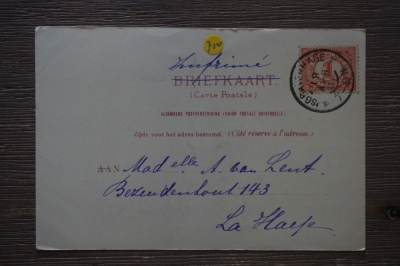 7,50
Imprimé
BRIEFKAART
(Carte Postale)
ALGEMEENE POSTVEREENIGING (UNION POSTALE UNIVERSELLE)
Zijde voor het adres bestemd. (Côté réservé à l'adresse.)
AAN Mad elle A. van Lent.
Bezuidenhout 143
La Haye